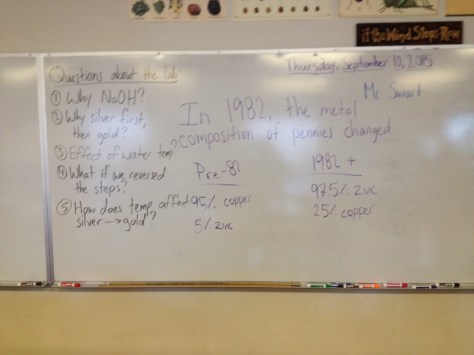 if the Wind Stops Row
Thursday, September 10, 2015
Mr Swart
Questions about the lab
① Why NaOH?
② Why silver first,
then gold?
③ Effect of water temp?
④ What if we reversed
the steps?
⑤ How does temp affect
silver → gold?
In 1982, the metal
composition of pennies changed
Pre-82
95% copper
5% zinc
1982 +
97.5% zinc
2.5% copper